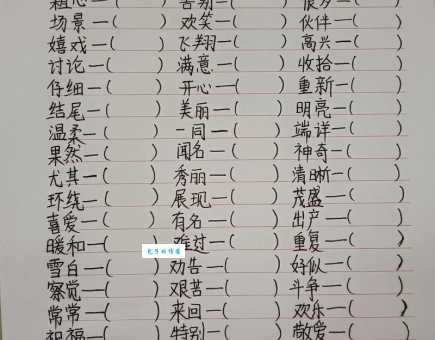 粗心—( ) 告别—( ) 很多—( )
场景—( ) 欢笑—( ) 伙伴—( )
嬉戏—( ) 飞翔—( ) 高兴—( )
讨论—( ) 满意—( ) 收拾—( )
仔细—( ) 开心—( ) 重新—( )
结尾—( ) 美丽—( ) 明亮—( )
温柔—( ) 一同—( ) 端详—( )
果然—( ) 闻名—( ) 神奇—( )
尤其—( ) 秀丽—( ) 清晰—( )
环绕—( ) 展现—( ) 茂盛—( )
喜爱—( ) 有名—( ) 出产—( )
暖和—( ) 难过—( ) 重复—( )
雪白—( ) 劝告—( ) 好似—( )
察觉—( ) 艰苦—( ) 斗争—( )
常常—( ) 来回—( ) 欢乐—( )
祝福—( ) 特别—( ) 敬爱—( )